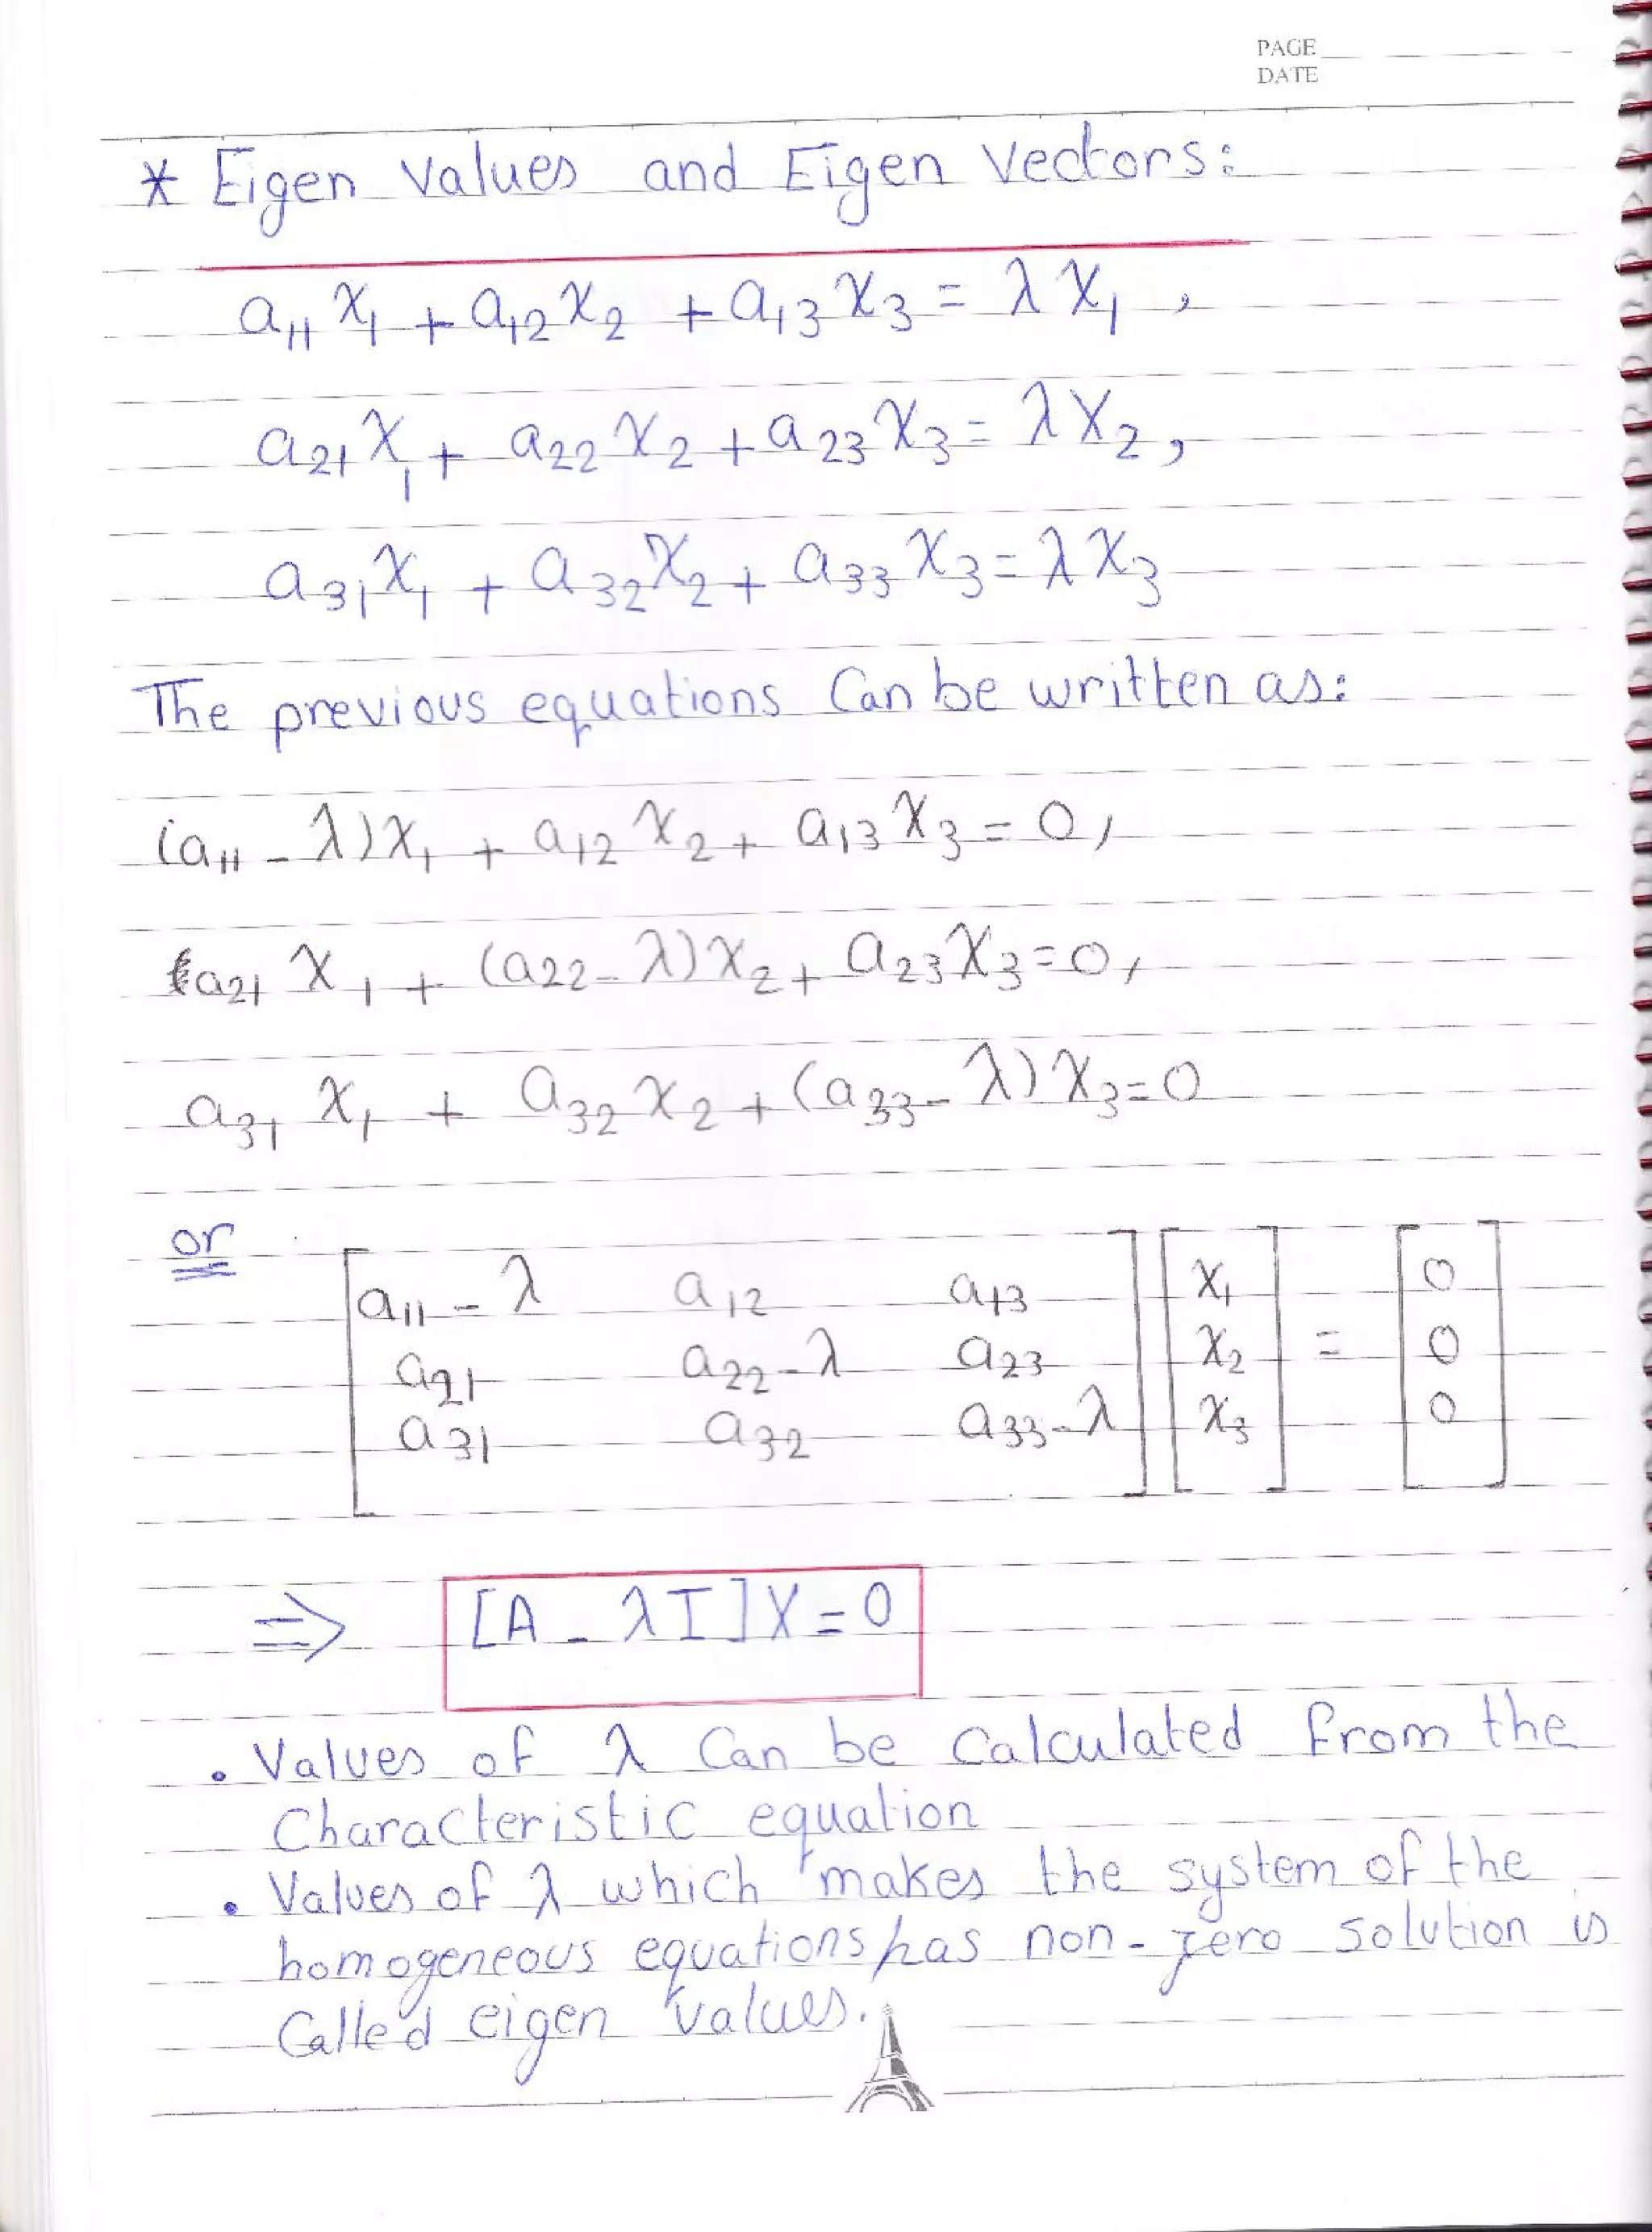 PAGE
DATE
* Eigen Values and Eigen Vectors:
a₁₁ x₁ + a₁₂ x₂ + a₁₃ x₃ = λ x₁ ,
a₂₁ x₁ + a₂₂ x₂ + a₂₃ x₃ = λ x₂ ,
a₃₁ x₁ + a₃₂ x₂ + a₃₃ x₃ = λ x₃
The previous equations Can be written as:
(a₁₁ - λ) x₁ + a₁₂ x₂ + a₁₃ x₃ = 0 ,
a₂₁ x₁ + (a₂₂ - λ) x₂ + a₂₃ x₃ = 0 ,
a₃₁ x₁ + a₃₂ x₂ + (a₃₃ - λ) x₃ = 0
or
[a₁₁ - λ a₁₂ a₁₃] [x₁] [0]
[a₂₁ a₂₂ - λ a₂₃] [x₂] = [0]
[a₃₁ a₃₂ a₃₃ - λ] [x₃] [0]
⇒ [A - λ I] X = 0
• Values of λ Can be Calculated from the
Characteristic equation
• Values of λ which makes the system of the
homogeneous equations has non-zero solution is
Called eigen values.